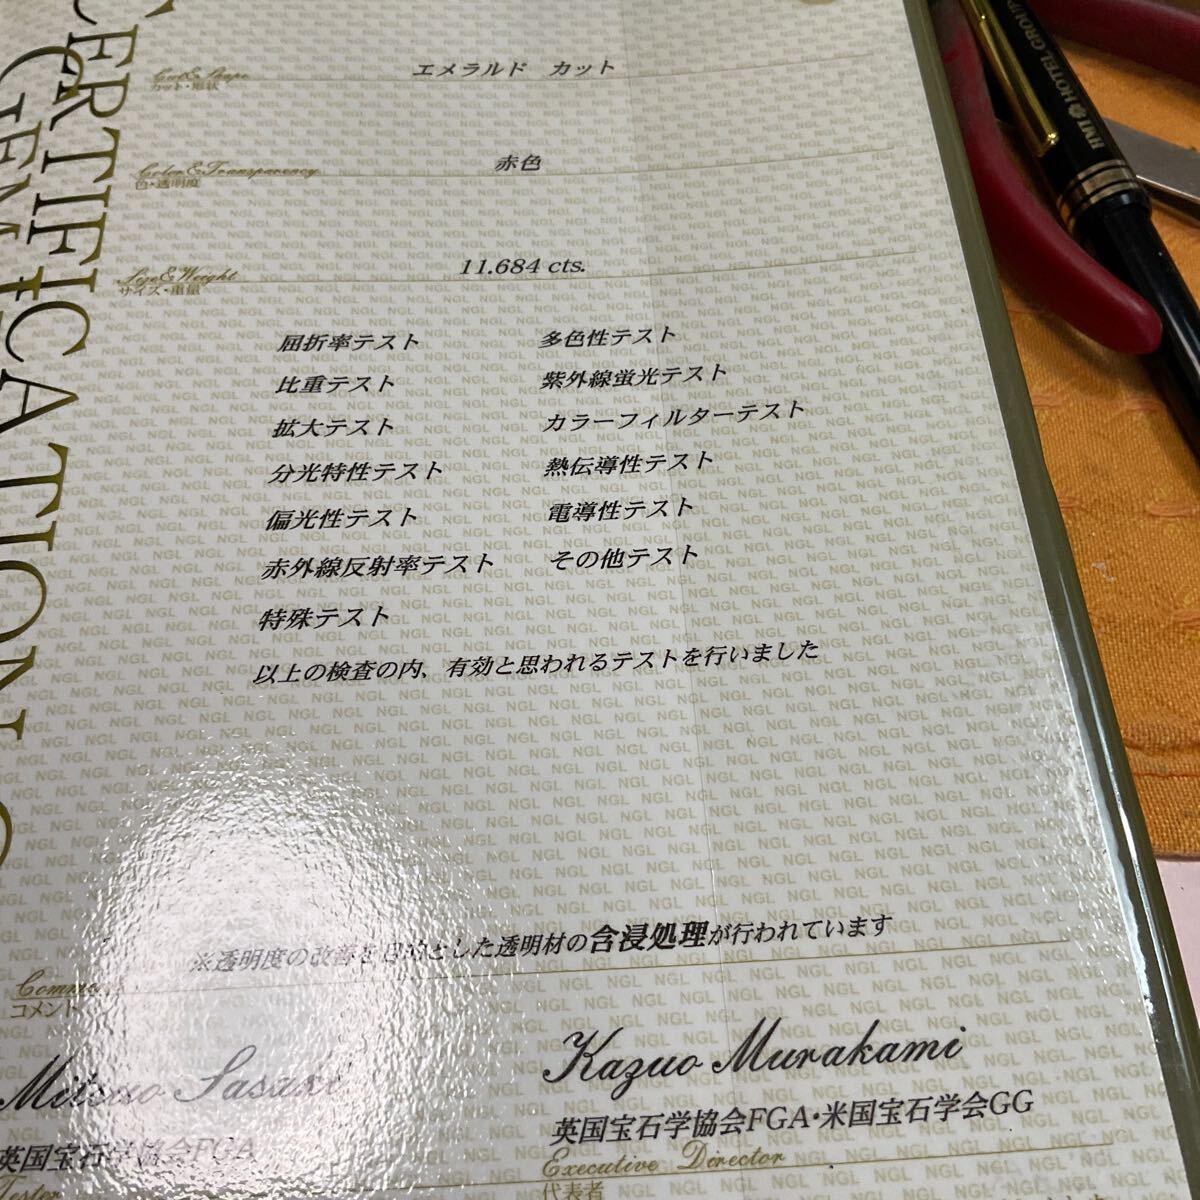 CERTIFICATION O
GEM
エメラルド　カット
Cut & Shape
カット・形状
赤色
Color & Transparency
色・透明度
11.684 cts.
Size & Weight
サイズ・重量
屈折率テスト　多色性テスト
比重テスト　紫外線蛍光テスト
拡大テスト　カラーフィルターテスト
分光特性テスト　熱伝導性テスト
偏光性テスト　電導性テスト
赤外線反射率テスト　その他テスト
特殊テスト
以上の検査の内、有効と思われるテストを行いました
※透明度の改善を目的とした透明材の含浸処理が行われています
Comme
コメント
Mitsuo Sasaki
英国宝石学協会FGA
Tester
Kazuo Murakami
英国宝石学協会FGA・米国宝石学会GG
Executive Director
代表者
HMI HOTEL GROUP